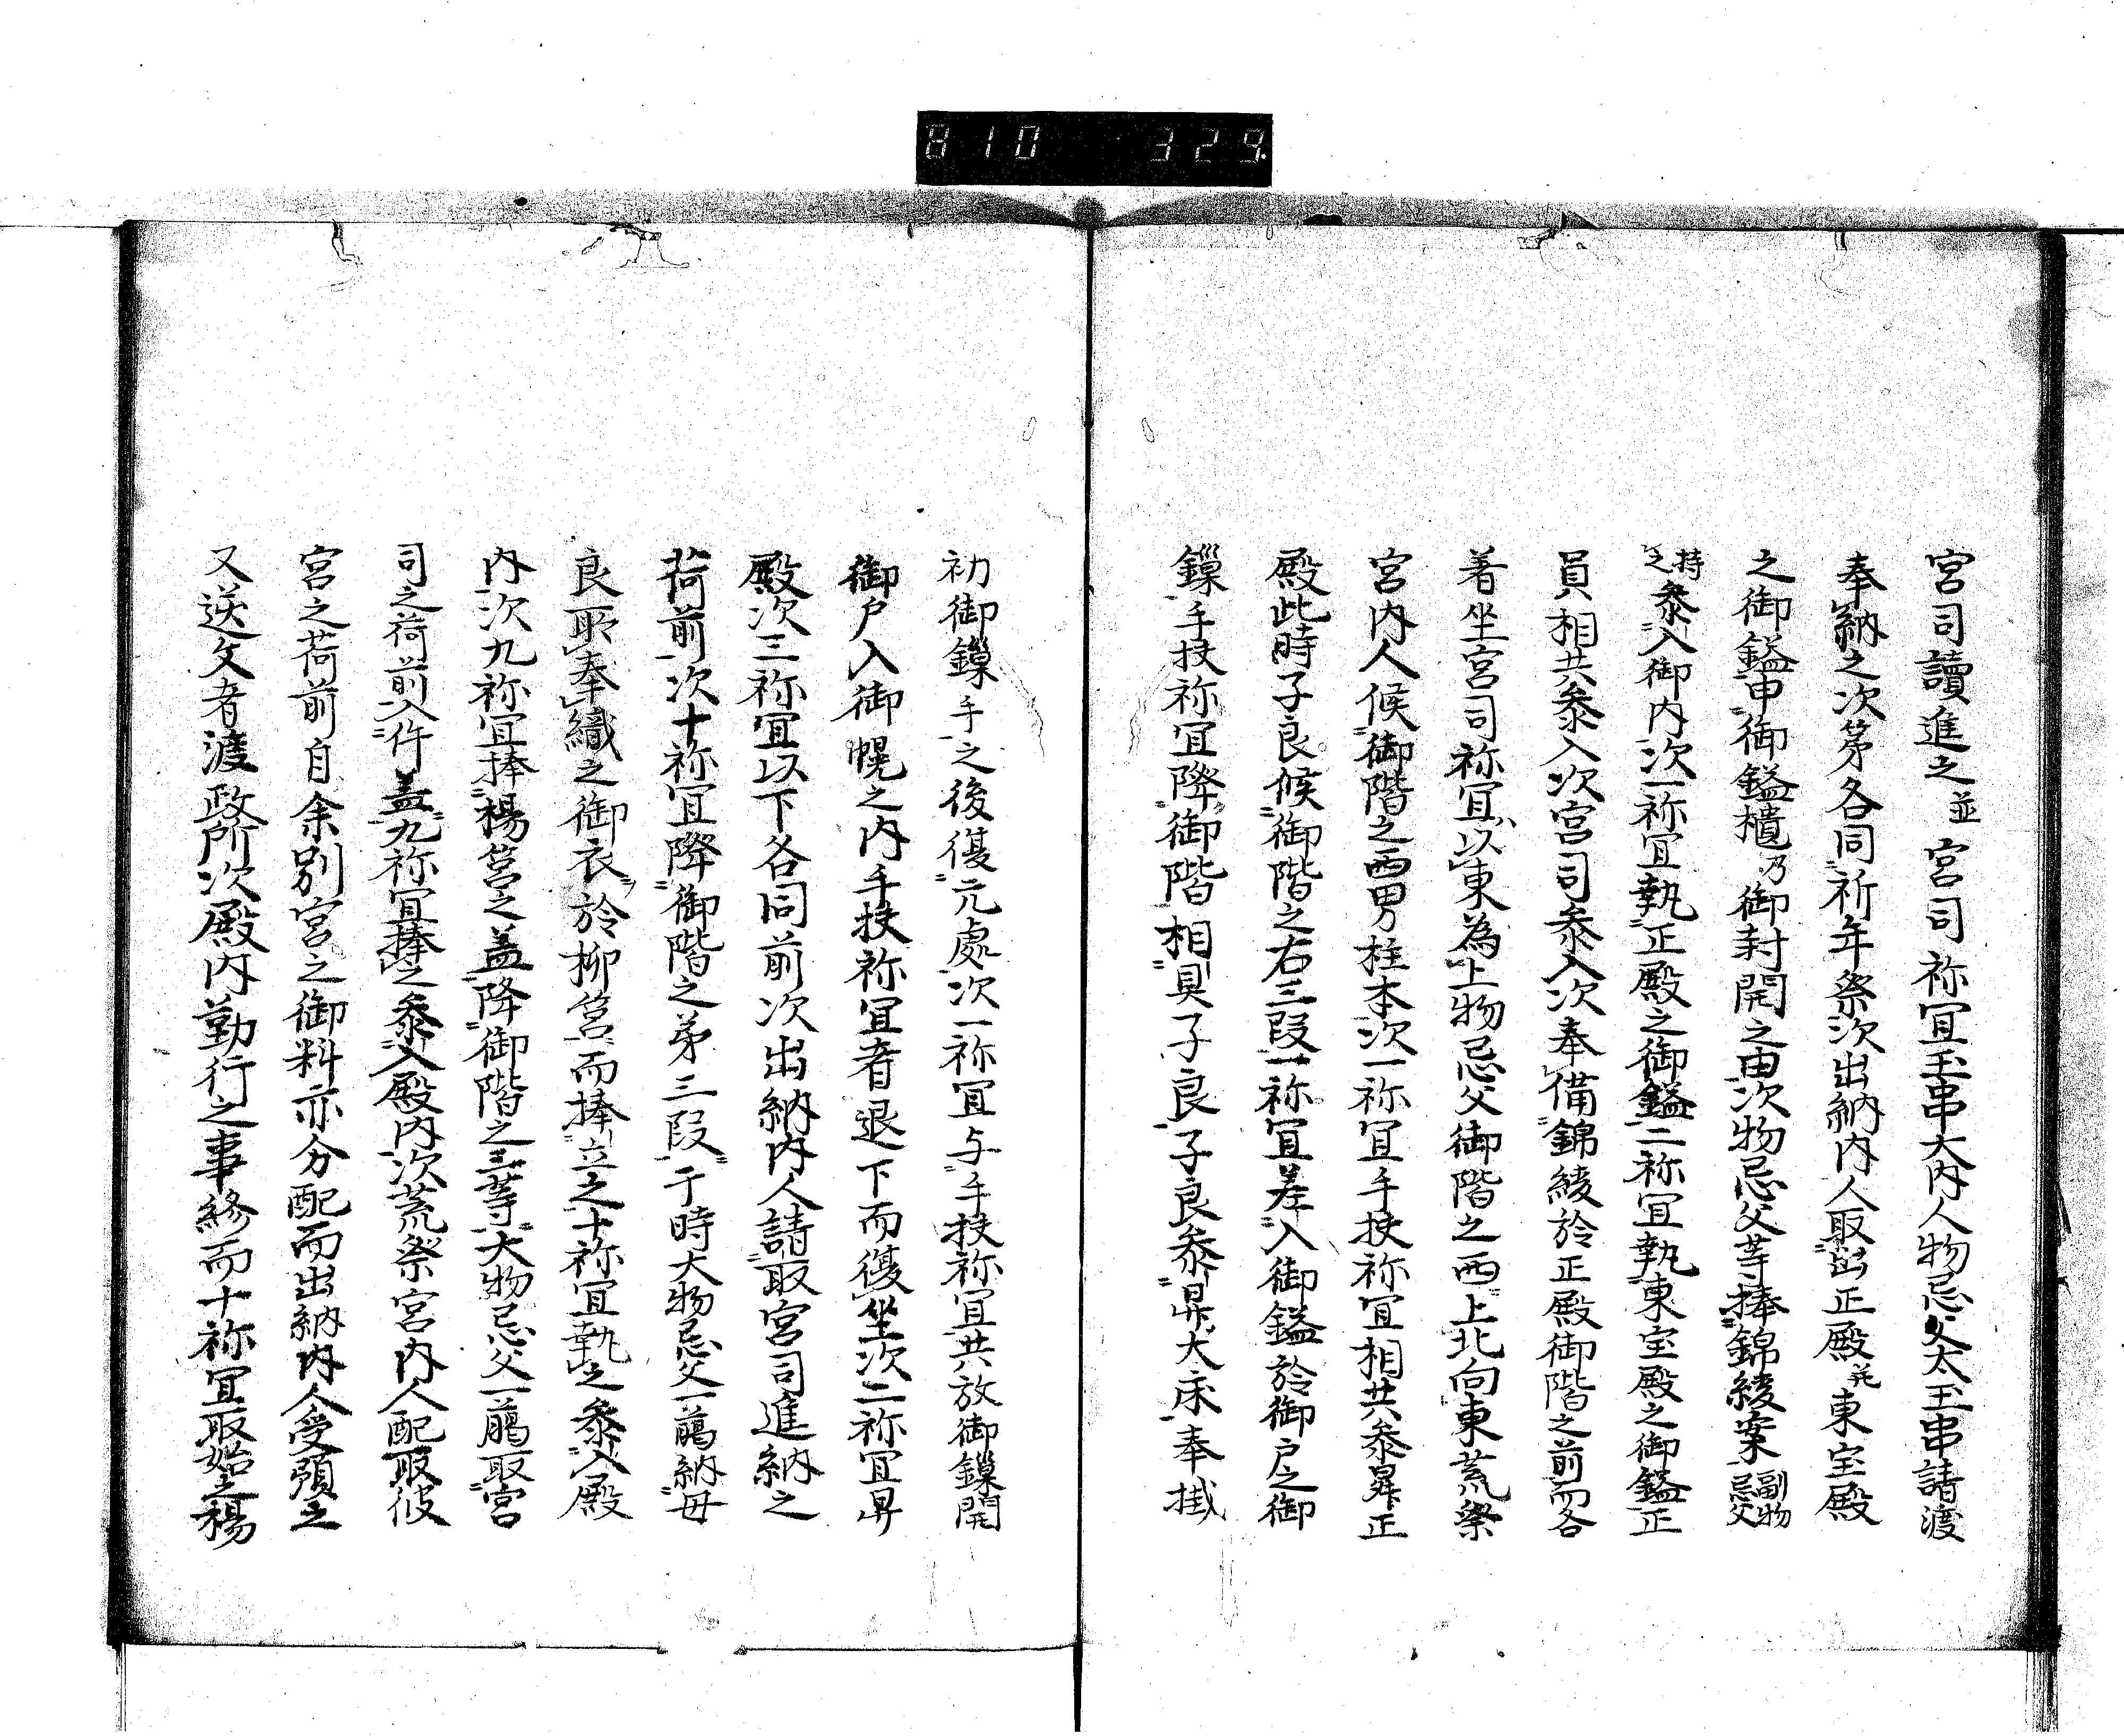 810 329.
宮司讀進之並宮司祢宜玉串大内人物忌父太玉串請渡
奉納之次第各同祈年祭次出納内人取出正殿并東宝殿
之御鎰申御鎰櫃乃御封開之由次物忌父等捧錦綾案副物忌父
持之参入御内次一祢宜執正殿之御鎰二祢宜執東宝殿之御鎰正
員相共参入次宮司参入次奉備錦綾於正殿御階之前而各
着坐宮司祢宜以東為上物忌父御階之西上北向東荒祭
宮内人候御階之西男柱本次一祢宜手扶祢宜相共参昇正
殿此時子良候御階之右三段一祢宜差入御鎰於御戸之御
鏁手扶祢宜降御階相具子良子良参昇大床奉掛
初御鏁手之後復元處次一祢宜与手扶祢宜共放御鏁開
御戸入御幌之内手扶祢宜者退下而復坐次二祢宜昇
殿次三祢宜以下各同前次出納内人請取宮司進納之
荷前次十祢宜降御階之弟三段于時大物忌父一﨟納母
良取奉織之御衣於柳筥而捧立之十祢宜執之参入殿
内次九祢宜捧楊筥之盖降御階之三等大物忌父一﨟取宮
司之荷前入件盖九祢宜捧之参入殿内次荒祭宮内人配取彼
宮之荷前自余別宮之御料亦分配而出納内人受領之
又送文者渡政所次殿内勤行之事終而十祢宜取始之楊